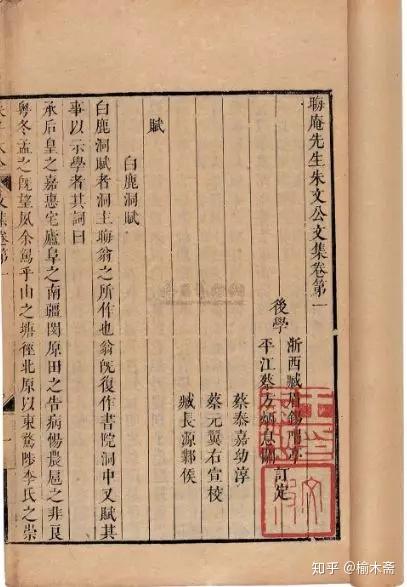 晦庵先生朱文公文集卷第一
後學
浙西臧眉錫
平江蔡方炳息關
訂定
蔡泰嘉幼淳
蔡元翼右宣校
臧長源鄴侯
賦
白鹿洞賦
白鹿洞賦者洞主晦翁之所作也翁既復作書院洞中又賦其
事以示學者其詞曰
承后皇之嘉惠宅廬阜之南疆閔原田之告病惕農扈之非良
粤冬孟之既望夙余駕乎山之塘徑北原以東騖陟李氏之崇
文集卷第一
知乎 @榆木斋